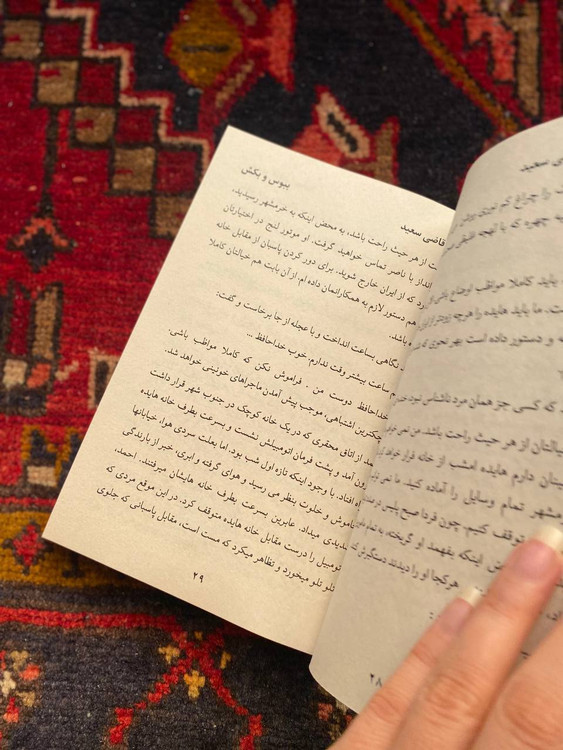 سعید
را چراغ کم نوری روشن
چهره که با لهجه
باید کاملا مواظب اوضاع باشی
ما باید هایده را هرچه زودتر از ایران
و دستور داده است بهر نحوی که
که کسی جز همان مرد ناشناس نبود،
خیالتان از هر حیث راحت باشد. من نمی
دارم هایده امشب از خانه فرار خواهد
تمام وسایل را آماده کنید. ما نمی
توقف کنیم. چون فردا صبح پلیس در
اینکه بفهمد او گریخته، به تمام
هرکجا او را دیدند دستگیر و
۲۸
ببوس و بکش
قاضی سعید
از هر حیث راحت باشد، به محض اینکه به خرمشهر رسیدید،
با ناصر تماس خواهید گرفت. او موتور لنج در اختیارتان
که از ایران خارج شوید. برای دور کردن پاسبان از مقابل خانه
هم دستور لازم به همکارانمان داده ام از آن بابت هم خیالتان کاملا
باشد.
نگاهی بساعت انداخت و با عجله از جا برخاست و گفت:
ساعت بیشتر وقت ندارم. خوب خداحافظ ...
خداحافظ دوست من . فراموش نکن که کاملا مواظب باشی.
کوچکترین اشتباهی، موجب پیش آمدن ماجراهای خونینی خواهد شد.
از اتاق محقری که در یک خانه کوچک در جنوب شهر قرار داشت
آمد و پشت فرمان اتومبیلش نشست و بسرعت بطرف خانه هایده
افتاد. با وجود اینکه تازه اول شب بود، اما بعلت سردی هوا، خیابانها
خاموش و خلوت بنظر می رسید و هوای گرفته و ابری، خبر از بارندگی
شدیدی میداد. عابرین بسرعت بطرف خانه هایشان میرفتند. احمد،
اتومبیل را درست مقابل خانه هایده متوقف کرد. در این موقع مردی که
تلو تلو میخورد و تظاهر میکرد که مست است، مقابل پاسبانی که جلوی
۲۹